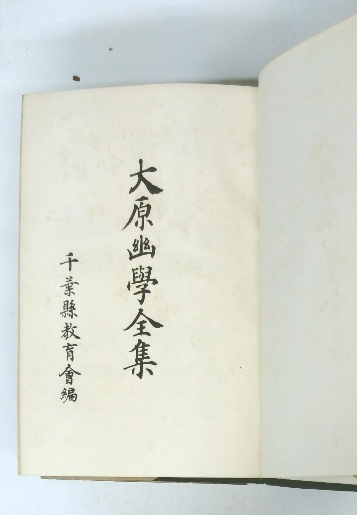 大原幽學全集
千葉縣教育會編